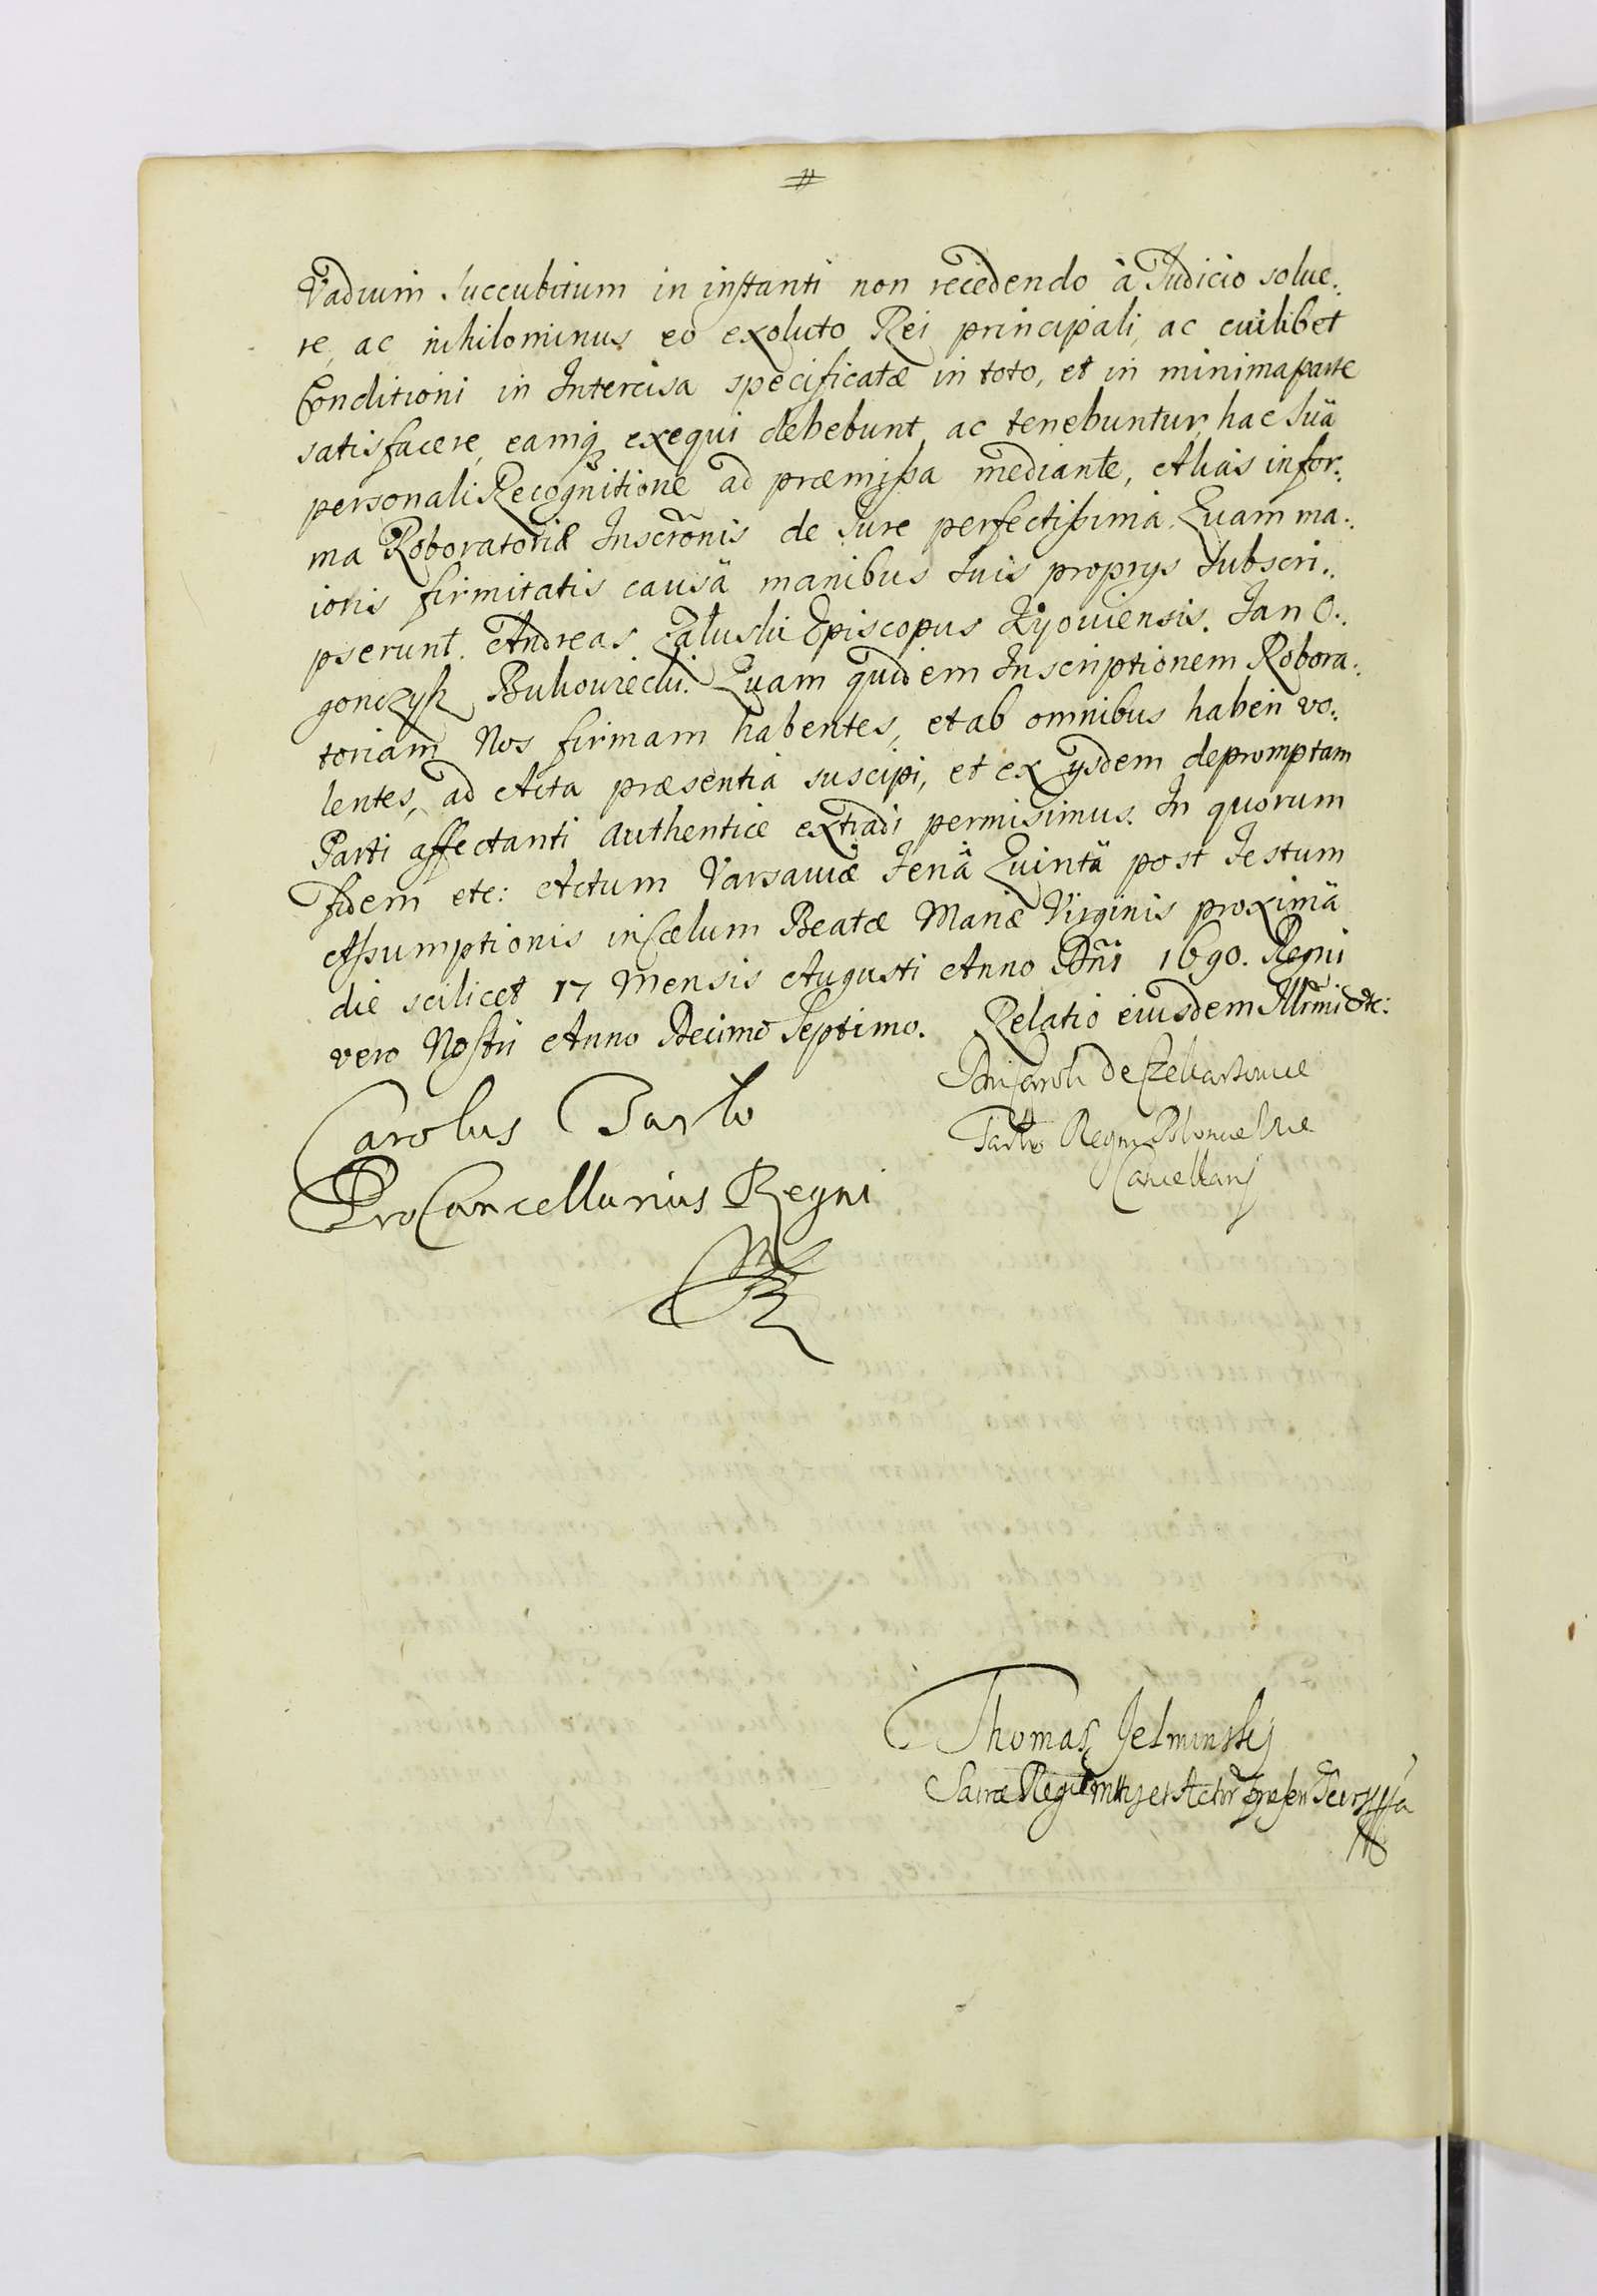 Vadium Succubitum in instanti non recedendo à Judicio solue:
re, ac nihilominus eo exoluto Rei principali, ac cuilibet
Conditioni in Intercisa specificatæ in toto, et in minima parte
satisfacere, eamq₃ exequi debebunt, ac tenebuntur, hac Suä
personali Recognitione ad præmißa mediante, Alias in for:
ma Roboratoriæ Inscrōnis de Jure perfectißima. Quam ma:
ioris firmitatis causä manibus suis proprys subscri:
pserunt. Andreas Załuski Episcopus Kijoviensis. Jan O:
gonczyk Bukowiecki. Quam quidem Inscriptionem Robora:
toriam Nos firmam habentes, et ab omnibus haberi vo:
lentes, ad Acta præsentia suscipi, et ex ijsdem depromptam
Parti affectanti authenticè extradi permisimus. In quorum
fidem etc: Actum Varsaviæ Feriä Quintä post Festum
Aßumptionis in Cælum Beatæ Mariæ Virginis proximä
die scilicet 17 Mensis Augusti Anno Dñi 1690. Regni
vero Nostri Anno Decimo Septimo.
Relatio eiusdem Illrmi etc:
Dni Caroli de Czekarzowice
Tarło Regni Poloniæ Vice
Cancellarij
Carolus Tarło
ProCancellarius Regni
Thomas Jelminskÿ
Sacræ Regiæ Mttis et Actor præsen